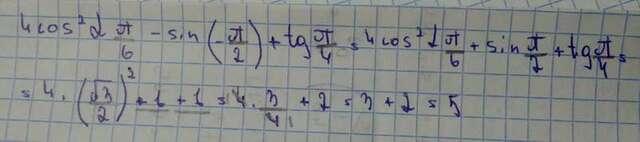 4cos² α π/6 - sin(-π/2) + tg π/4 = 4cos² α π/6 + sin π/2 + tg π/4 =
= 4 · (√3/2)² + 1 + 1 = 4 · 3/4 + 2 = 3 + 2 = 5